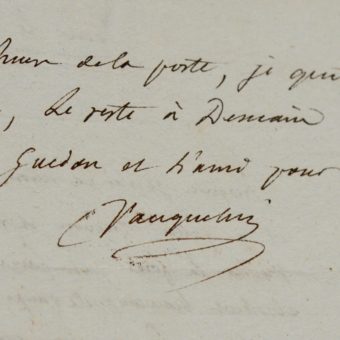 de la poste, je
, le reste à Demain
Guidon et l'ami pour
Vauquelin